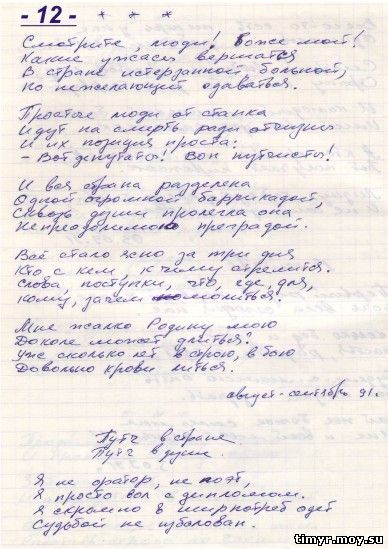 - 12 -
* * *
Смотрите, люди! Боже мой!
Какие ужасы вершатся
В стране истерзанной больной,
Но не желающей сдаваться.
Простые люди от станка
Идут на смерть ради отчизны
И их позиция проста:
- Вот депутаты! Вон путчисты!
И вся страна разделена
Одной огромной баррикадой,
Сквозь души пролегла она
Непреодолимою преградой.
Всё стало ясно за три дня
Кто с кем, к чему стремится.
Слова, поступки, что, где, для,
Кому, зачем молиться.
Мне жалко Родину мою
Доколе может длиться?
Уже сколько лет в строю, в бою
Довольно крови литься.
август-сентябрь 91 г.
Путч в стране.
Путч в душе.
Я не оратор, не поэт,
Я просто вол с дипломом.
Я скромно в ширпотреб одет
Судьбой не избалован.
timyr.moy.su